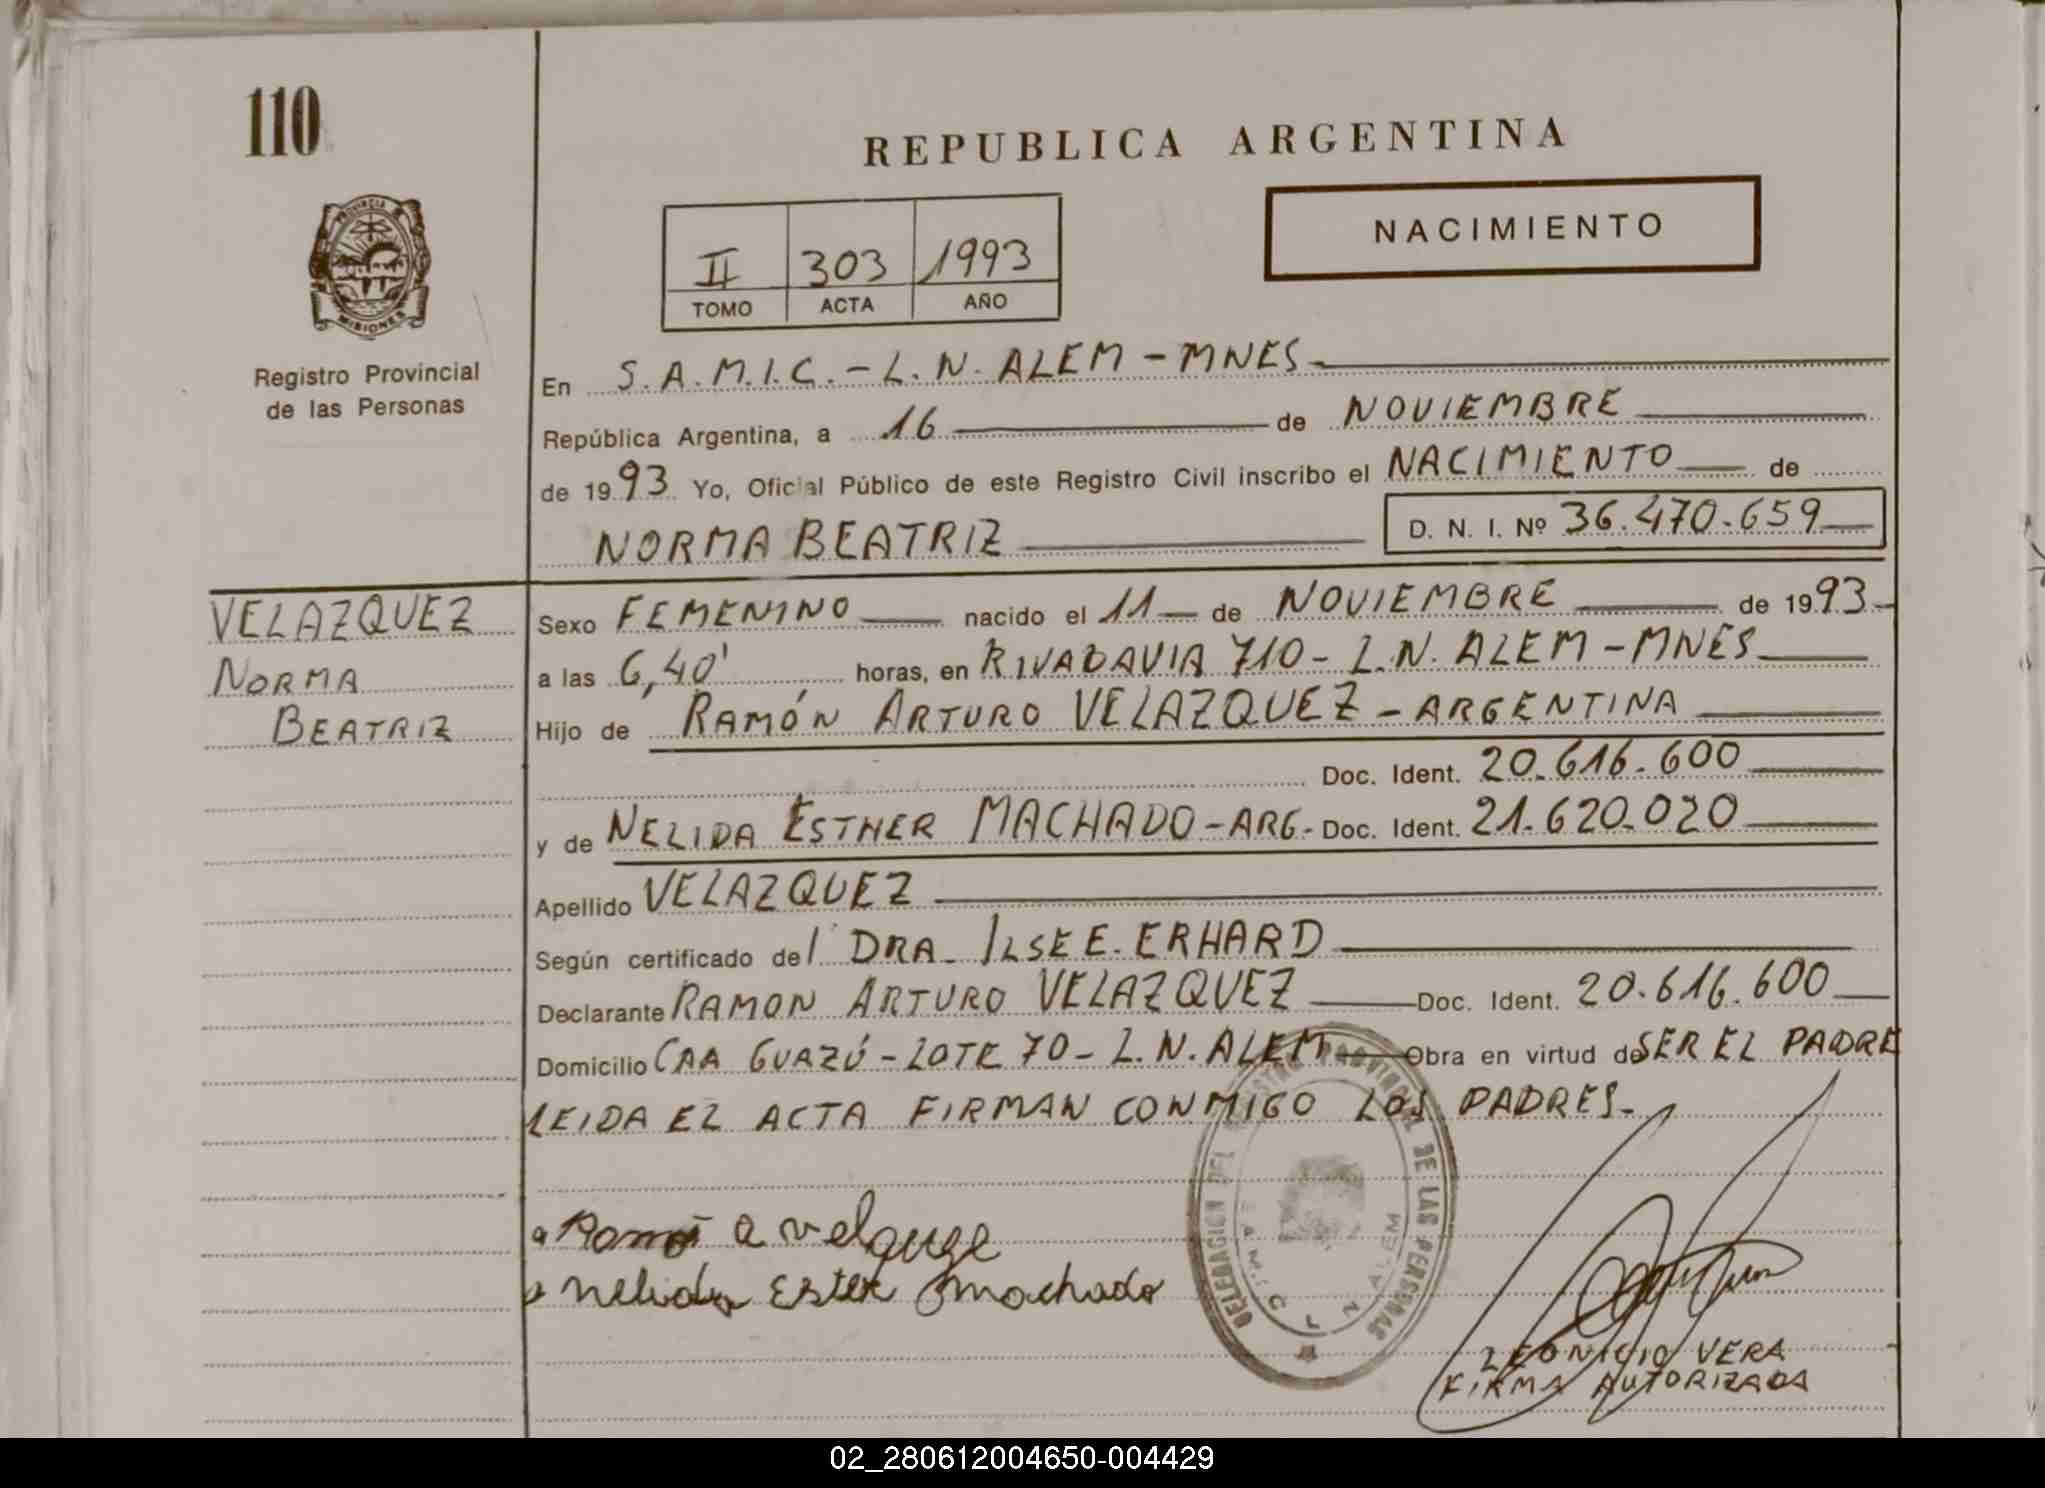 110
REPUBLICA ARGENTINA
NACIMIENTO
II 303 1993
TOMO ACTA AÑO
PROVINCIA DE
MISIONES
Registro Provincial
de las Personas
En S.A.M.I.C. - L.N. ALEM - MNES
República Argentina, a 16 de NOVIEMBRE
de 1993 Yo, Oficial Público de este Registro Civil inscribo el NACIMIENTO de
NORMA BEATRIZ D. N. I. Nº 36.470.659
VELAZQUEZ
NORMA
BEATRIZ
Sexo FEMENINO nacido el 11 de NOVIEMBRE de 1993
a las 6,40' horas, en RIVADAVIA 710 - L.N. ALEM - MNES
Hijo de RAMÓN ARTURO VELAZQUEZ - ARGENTINA
Doc. Ident. 20.616.600
y de NELIDA ESTHER MACHADO - ARG- Doc. Ident. 21.620.020
Apellido VELAZQUEZ
Según certificado del DRA. ILSE E. ERHARD
Declarante RAMON ARTURO VELAZQUEZ Doc. Ident. 20.616.600
Domicilio CAA GUAZÚ - LOTE 70 - L.N. ALEM Obra en virtud de SER EL PADRE
LEIDA EL ACTA FIRMAN CONMIGO LOS PADRES.
a velquze
nelida Ester machado
DELEGACION DEL REGISTRO PROVINCIAL DE LAS PERSONAS
S.A.M.I.C. L.N. ALEM
LEONICIO VERA
FIRMA AUTORIZADA
02_280612004650-004429